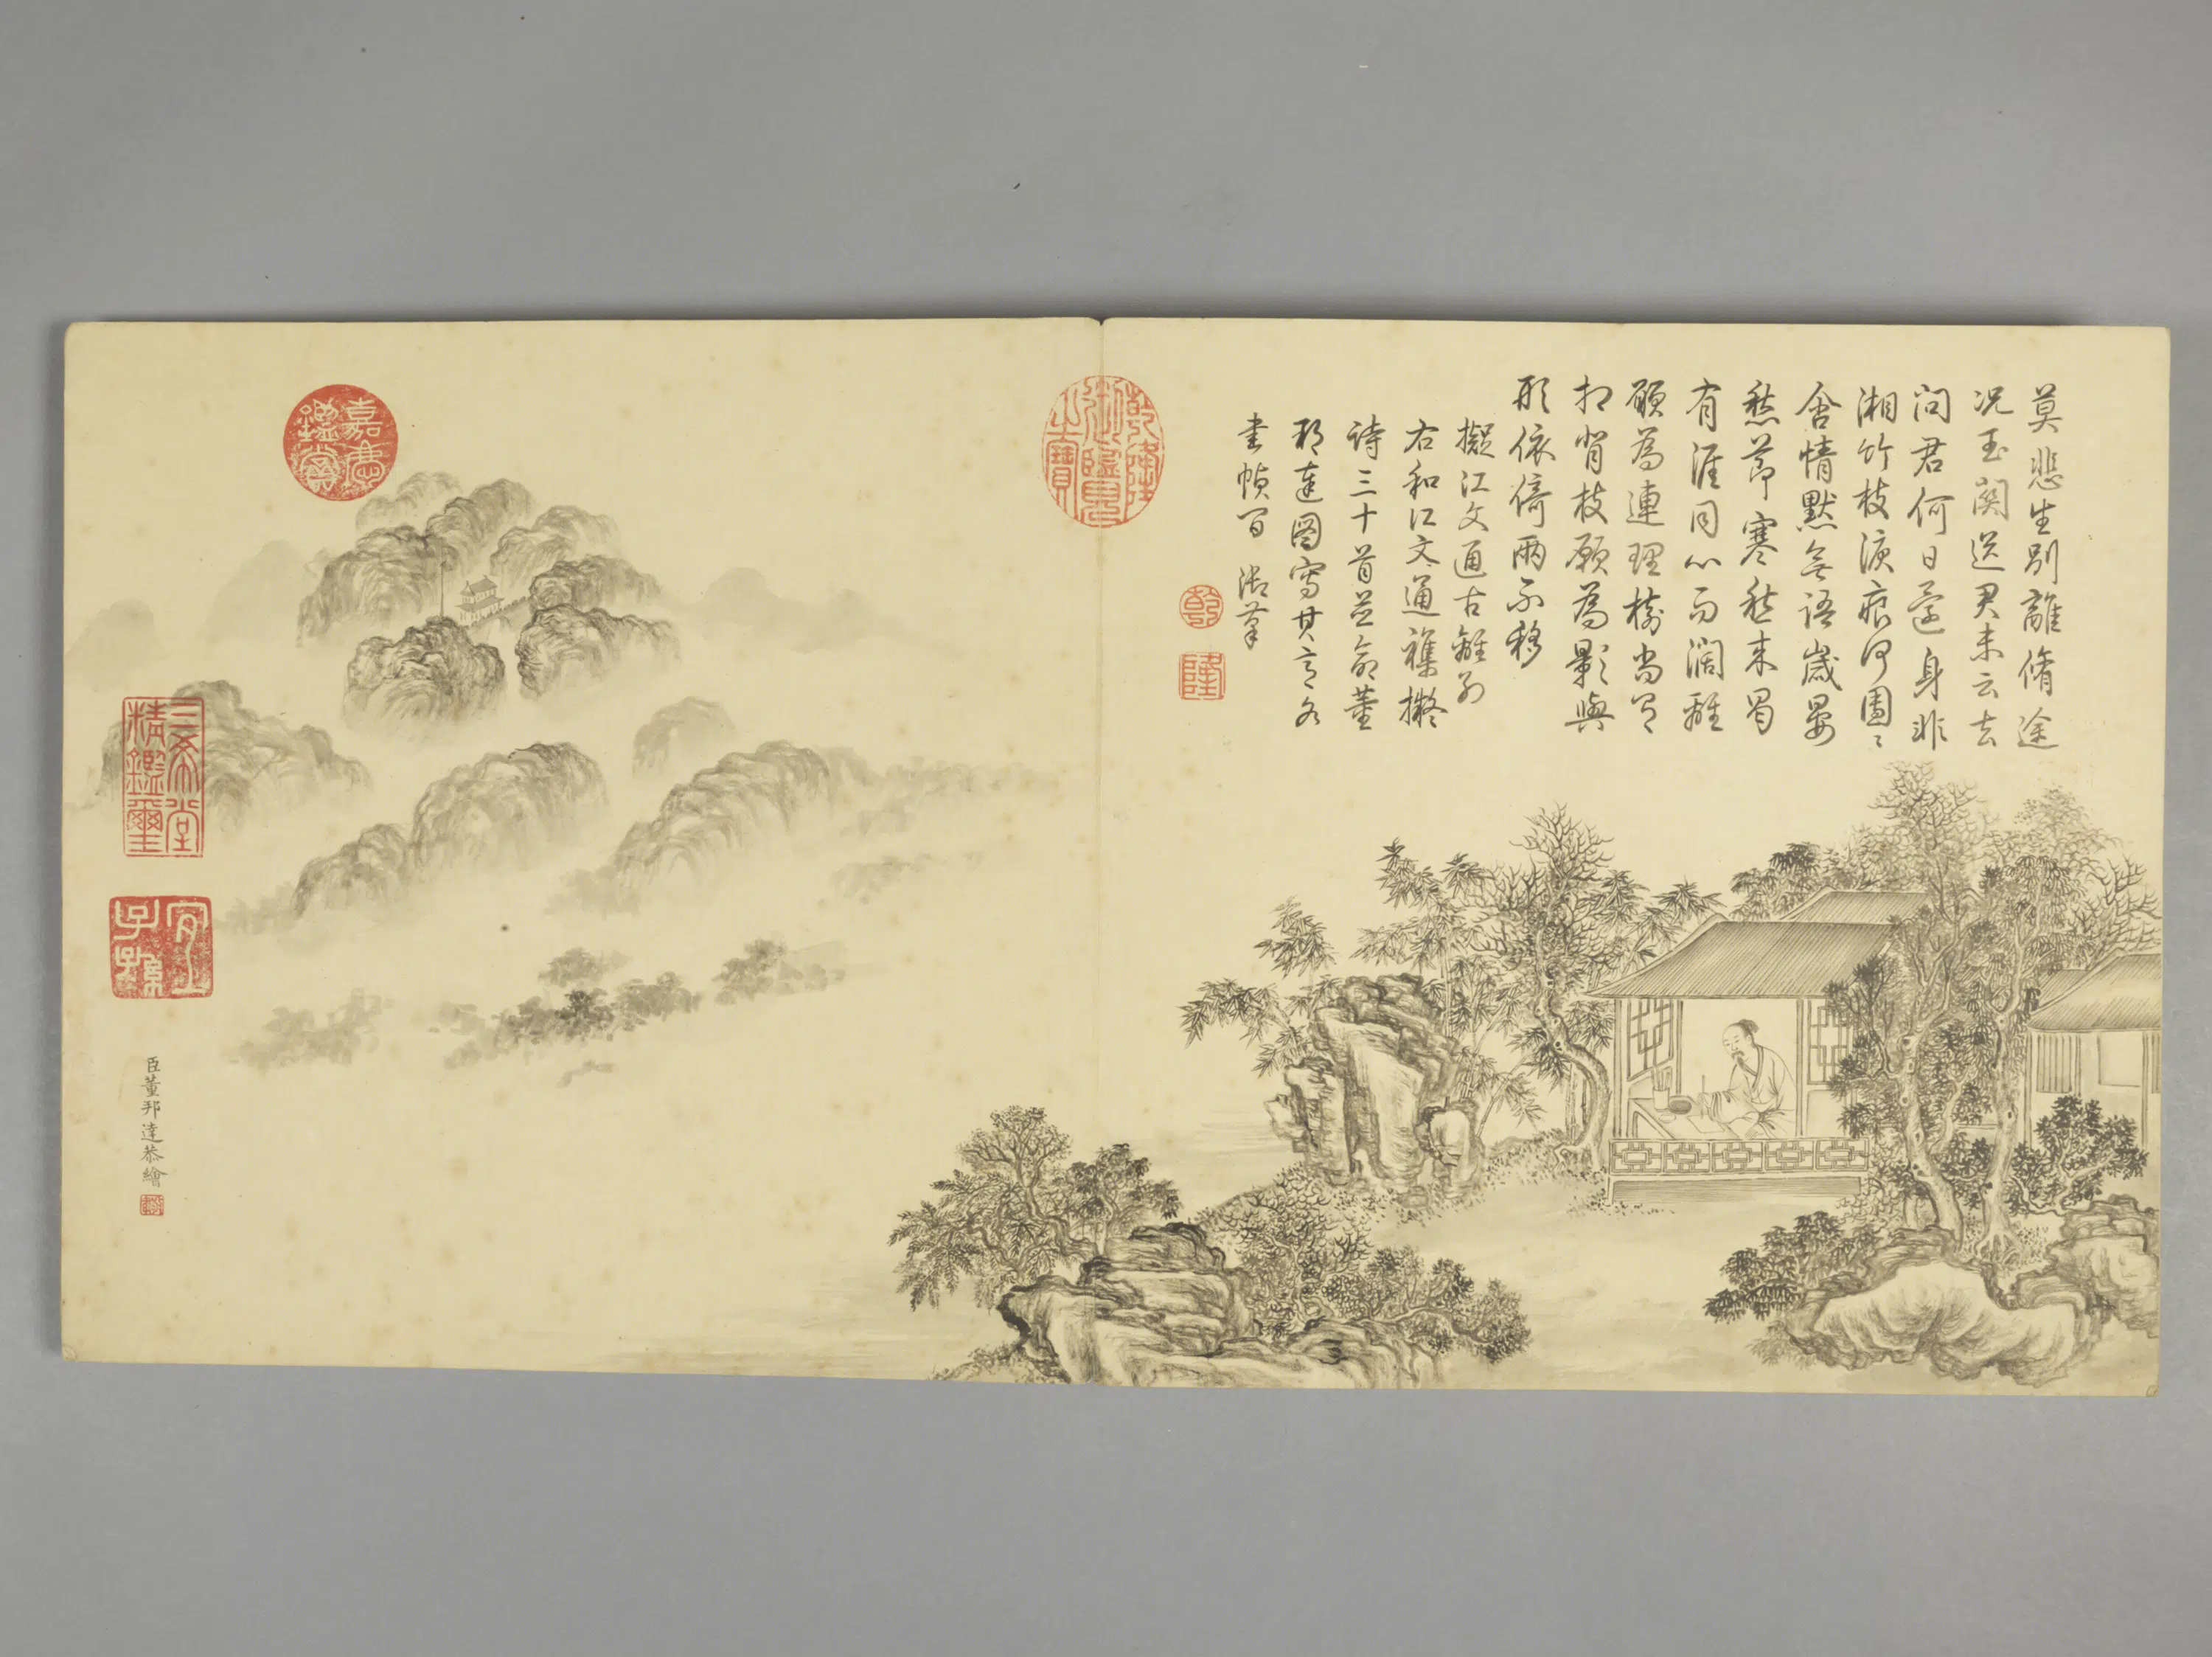 莫悲生別離脩途
况玉關送君未云去
問君何日還身非
湘竹枝淚痕何團〻
含情默無語歲晏
愁節寒愁来蜀
有涯同心而濶離
願為連理樹尚有
相背枝願為影與
形依倚兩不移
擬江文通古離別
右和江文通襍擬
詩三十首並命董
邦達圖寫其意各
書幀首 御筆
乾
隆
乾隆御覽之寶
嘉慶鑑賞
三希堂精鑑璽
宜子孫
臣董邦達恭繪